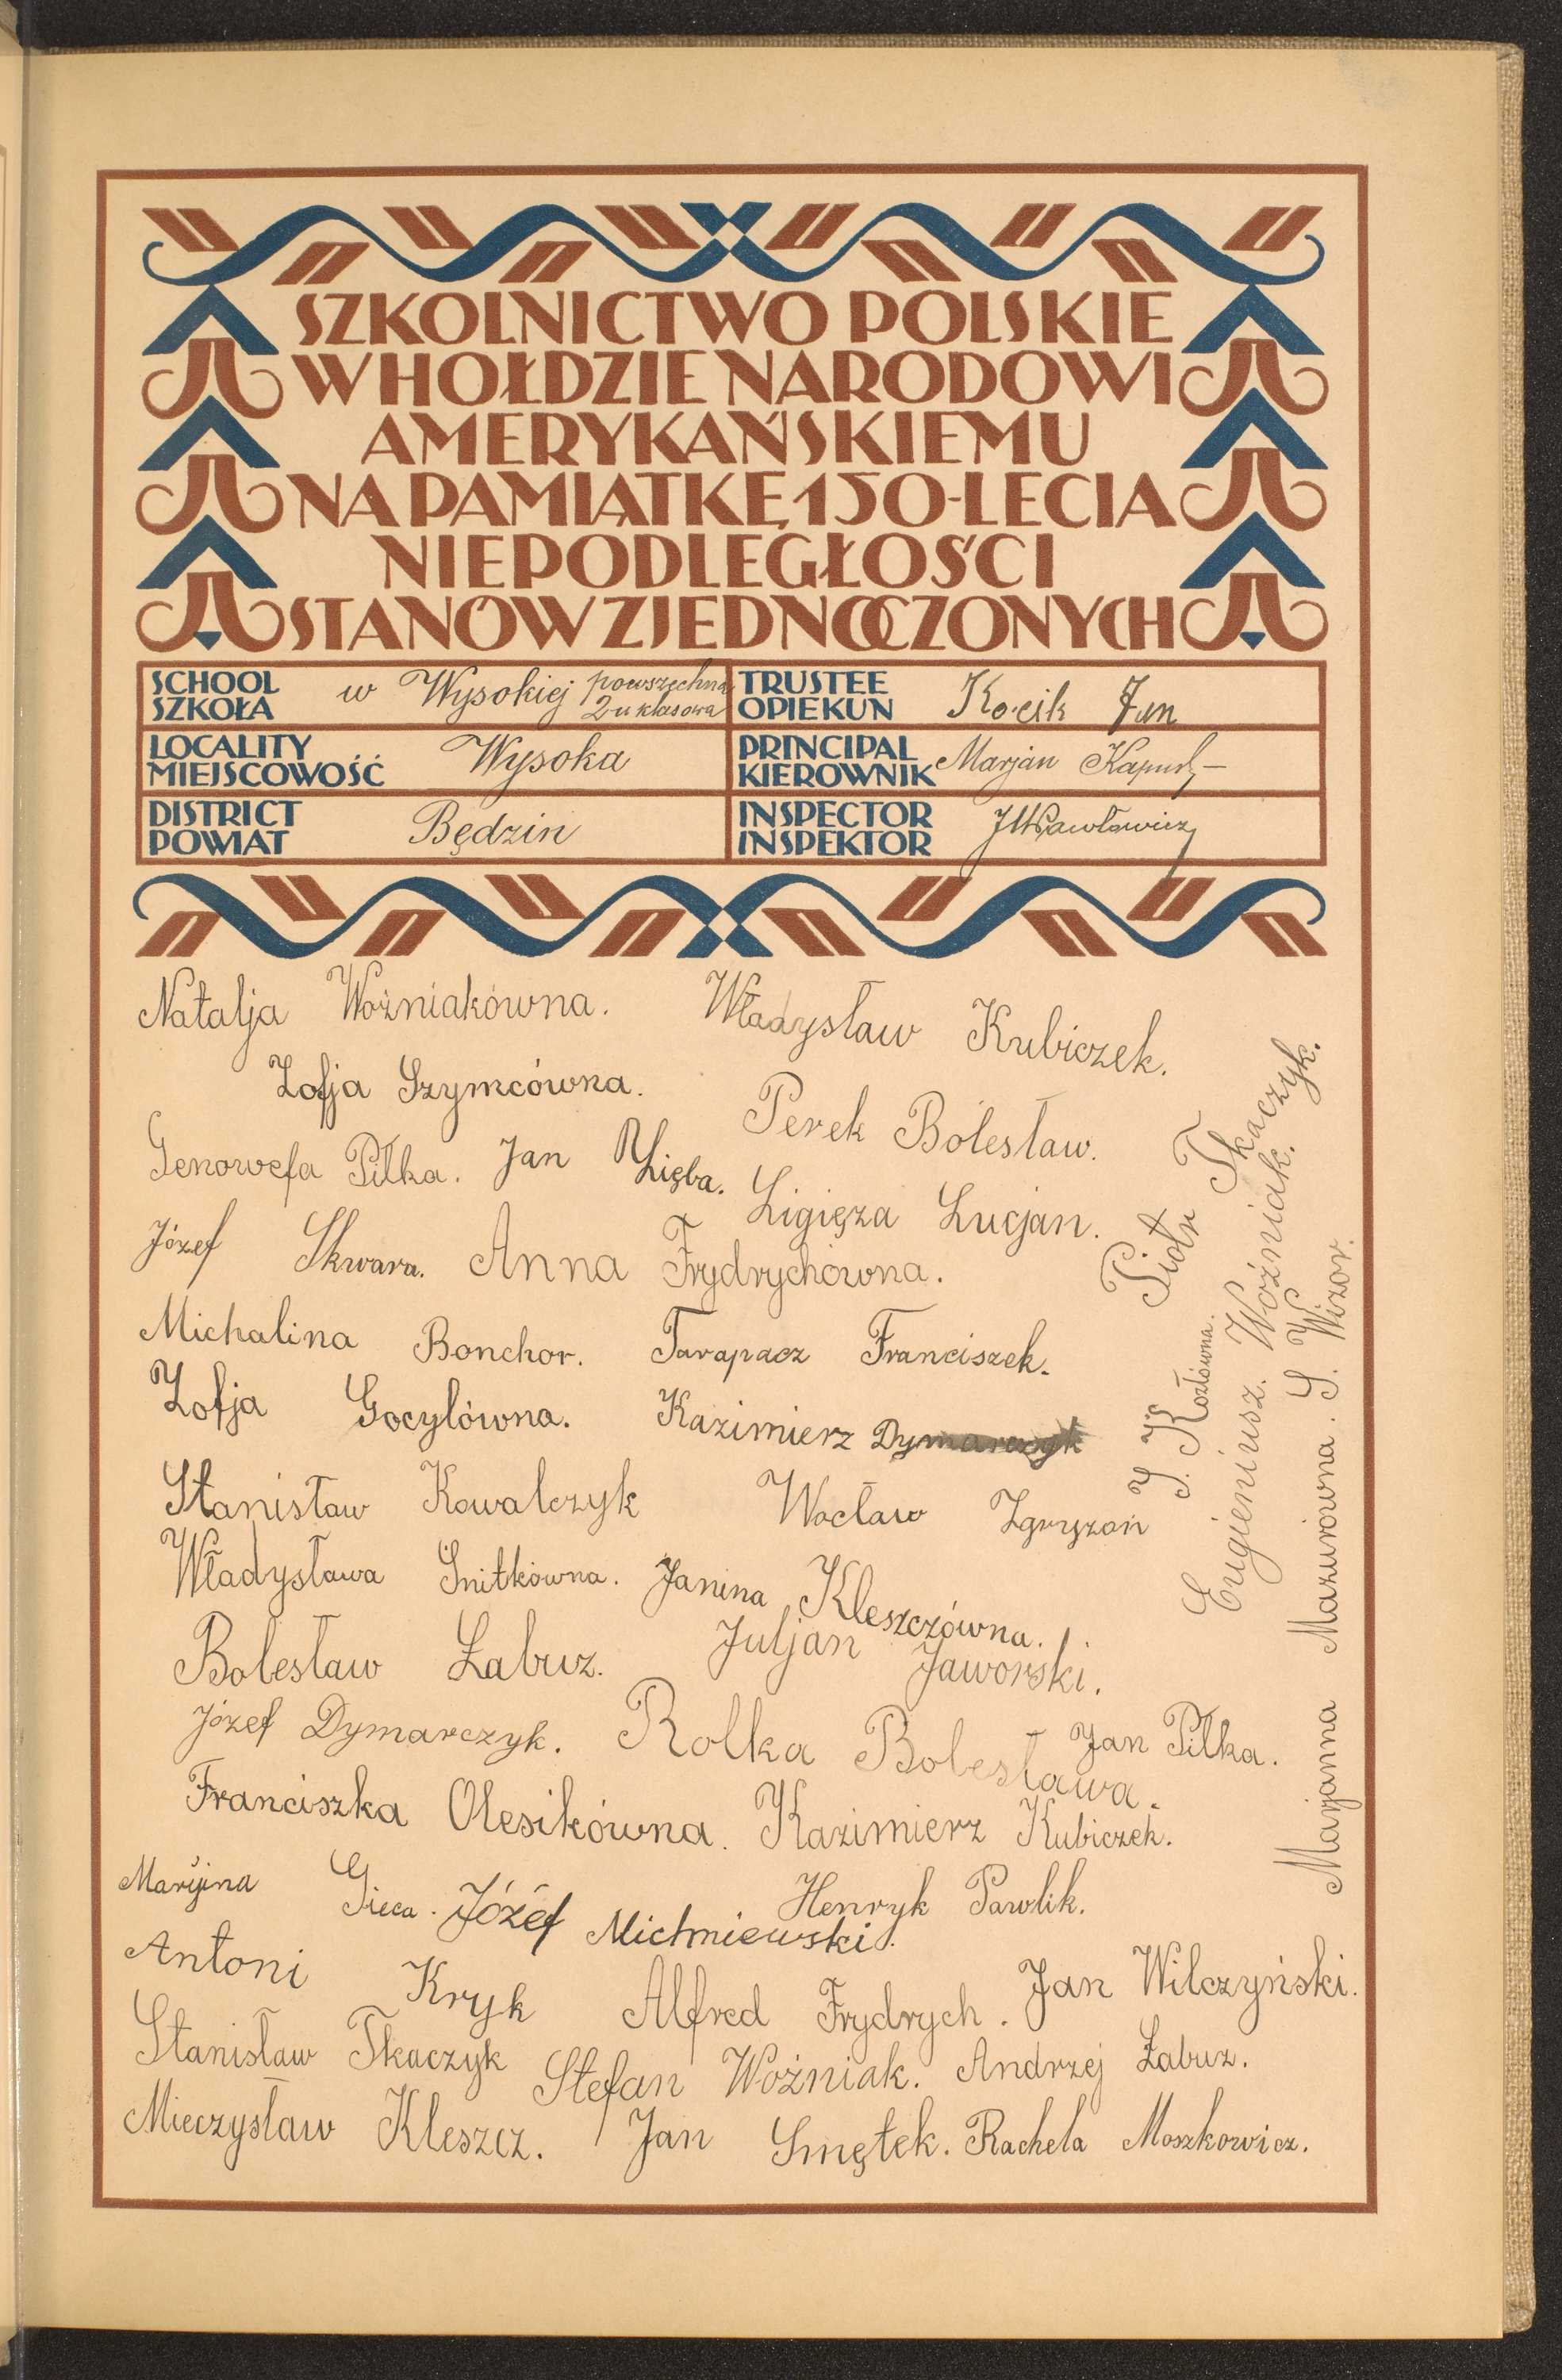 SZKOLNICTWO POLSKIE
W HOŁDZIE NARODOWI
AMERYKAŃSKIEMU
NA PAMIĄTKĘ 150-LECIA
NIEPODLEGŁOŚCI
STANÓW ZJEDNOCZONYCH
SCHOOL
SZKOŁA
w Wysokiej powszechna
2u klasowa
TRUSTEE
OPIEKUN
Kocik Jan
LOCALITY
MIEJSCOWOŚĆ
Wysoka
PRINCIPAL
KIEROWNIK
Marjan
DISTRICT
POWIAT
Będzin
INSPECTOR
INSPEKTOR
JWPawłowicz
Natalja Woźniakówna. Władysław Kubiczek.
Zofja Szymcówna.
Perek Bolesław.
Genowefa Piłka. Jan Zięba.
Ligięza Lucjan.
Józef Skwara. Anna Frydrychówna.
Michalina Bonchor. Tarapacz Franciszek.
Zofja Gocylówna. Kazimierz Dymarczyk
Stanisław Kowalczyk Wacław Zgryzoń
Władysława Śnitkówna. Janina Kleszczówna.
Bolesław Łabuz. Juljan Jaworski.
Józef Dymarczyk. Rolka Bolesława. Jan Piłka.
Franciszka Olesikówna. Kazimierz Kubiczek.
Maryjna Gieca. Józef Michniewski. Henryk Pawlik.
Antoni Kryk Alfred Frydrych. Jan Wilczyński.
Stanisław Tkaczyk Stefan Woźniak. Andrzej Łabuz.
Mieczysław Kleszcz. Jan Smętek. Rachela Moszkowicz.
Piotr Tkaczyk.
J. Kozłówna.
Eugieniusz Woźniak.
Marjanna Mazurówna. S. Wizor.